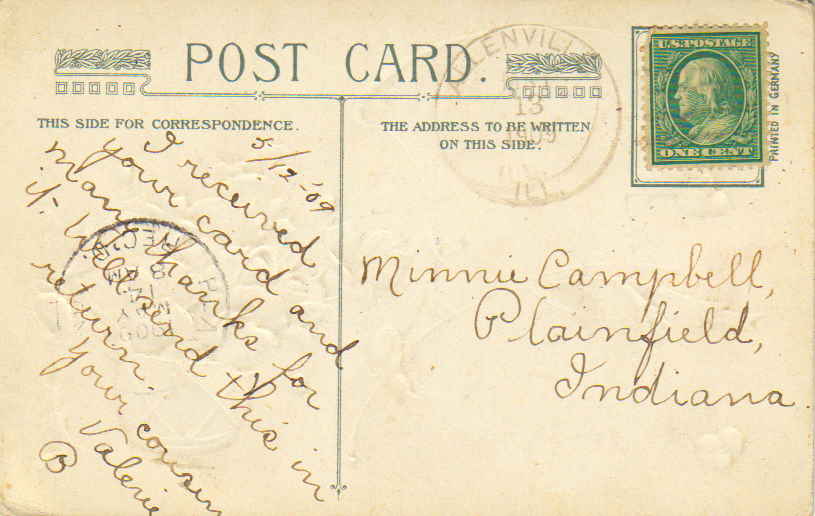 POST CARD.
THIS SIDE FOR CORRESPONDENCE.
THE ADDRESS TO BE WRITTEN
ON THIS SIDE.
ALLENVILLE
13
1909
ILL.
U.S. POSTAGE
ONE CENT
PRINTED IN GERMANY
5/12-'09
I received
your card and
many thanks for
it. Will send this in
return.
Your cousin
Valerie
B
REC'D
8 AM
MAY
1909
Minnie Campbell,
Plainfield,
Indiana.